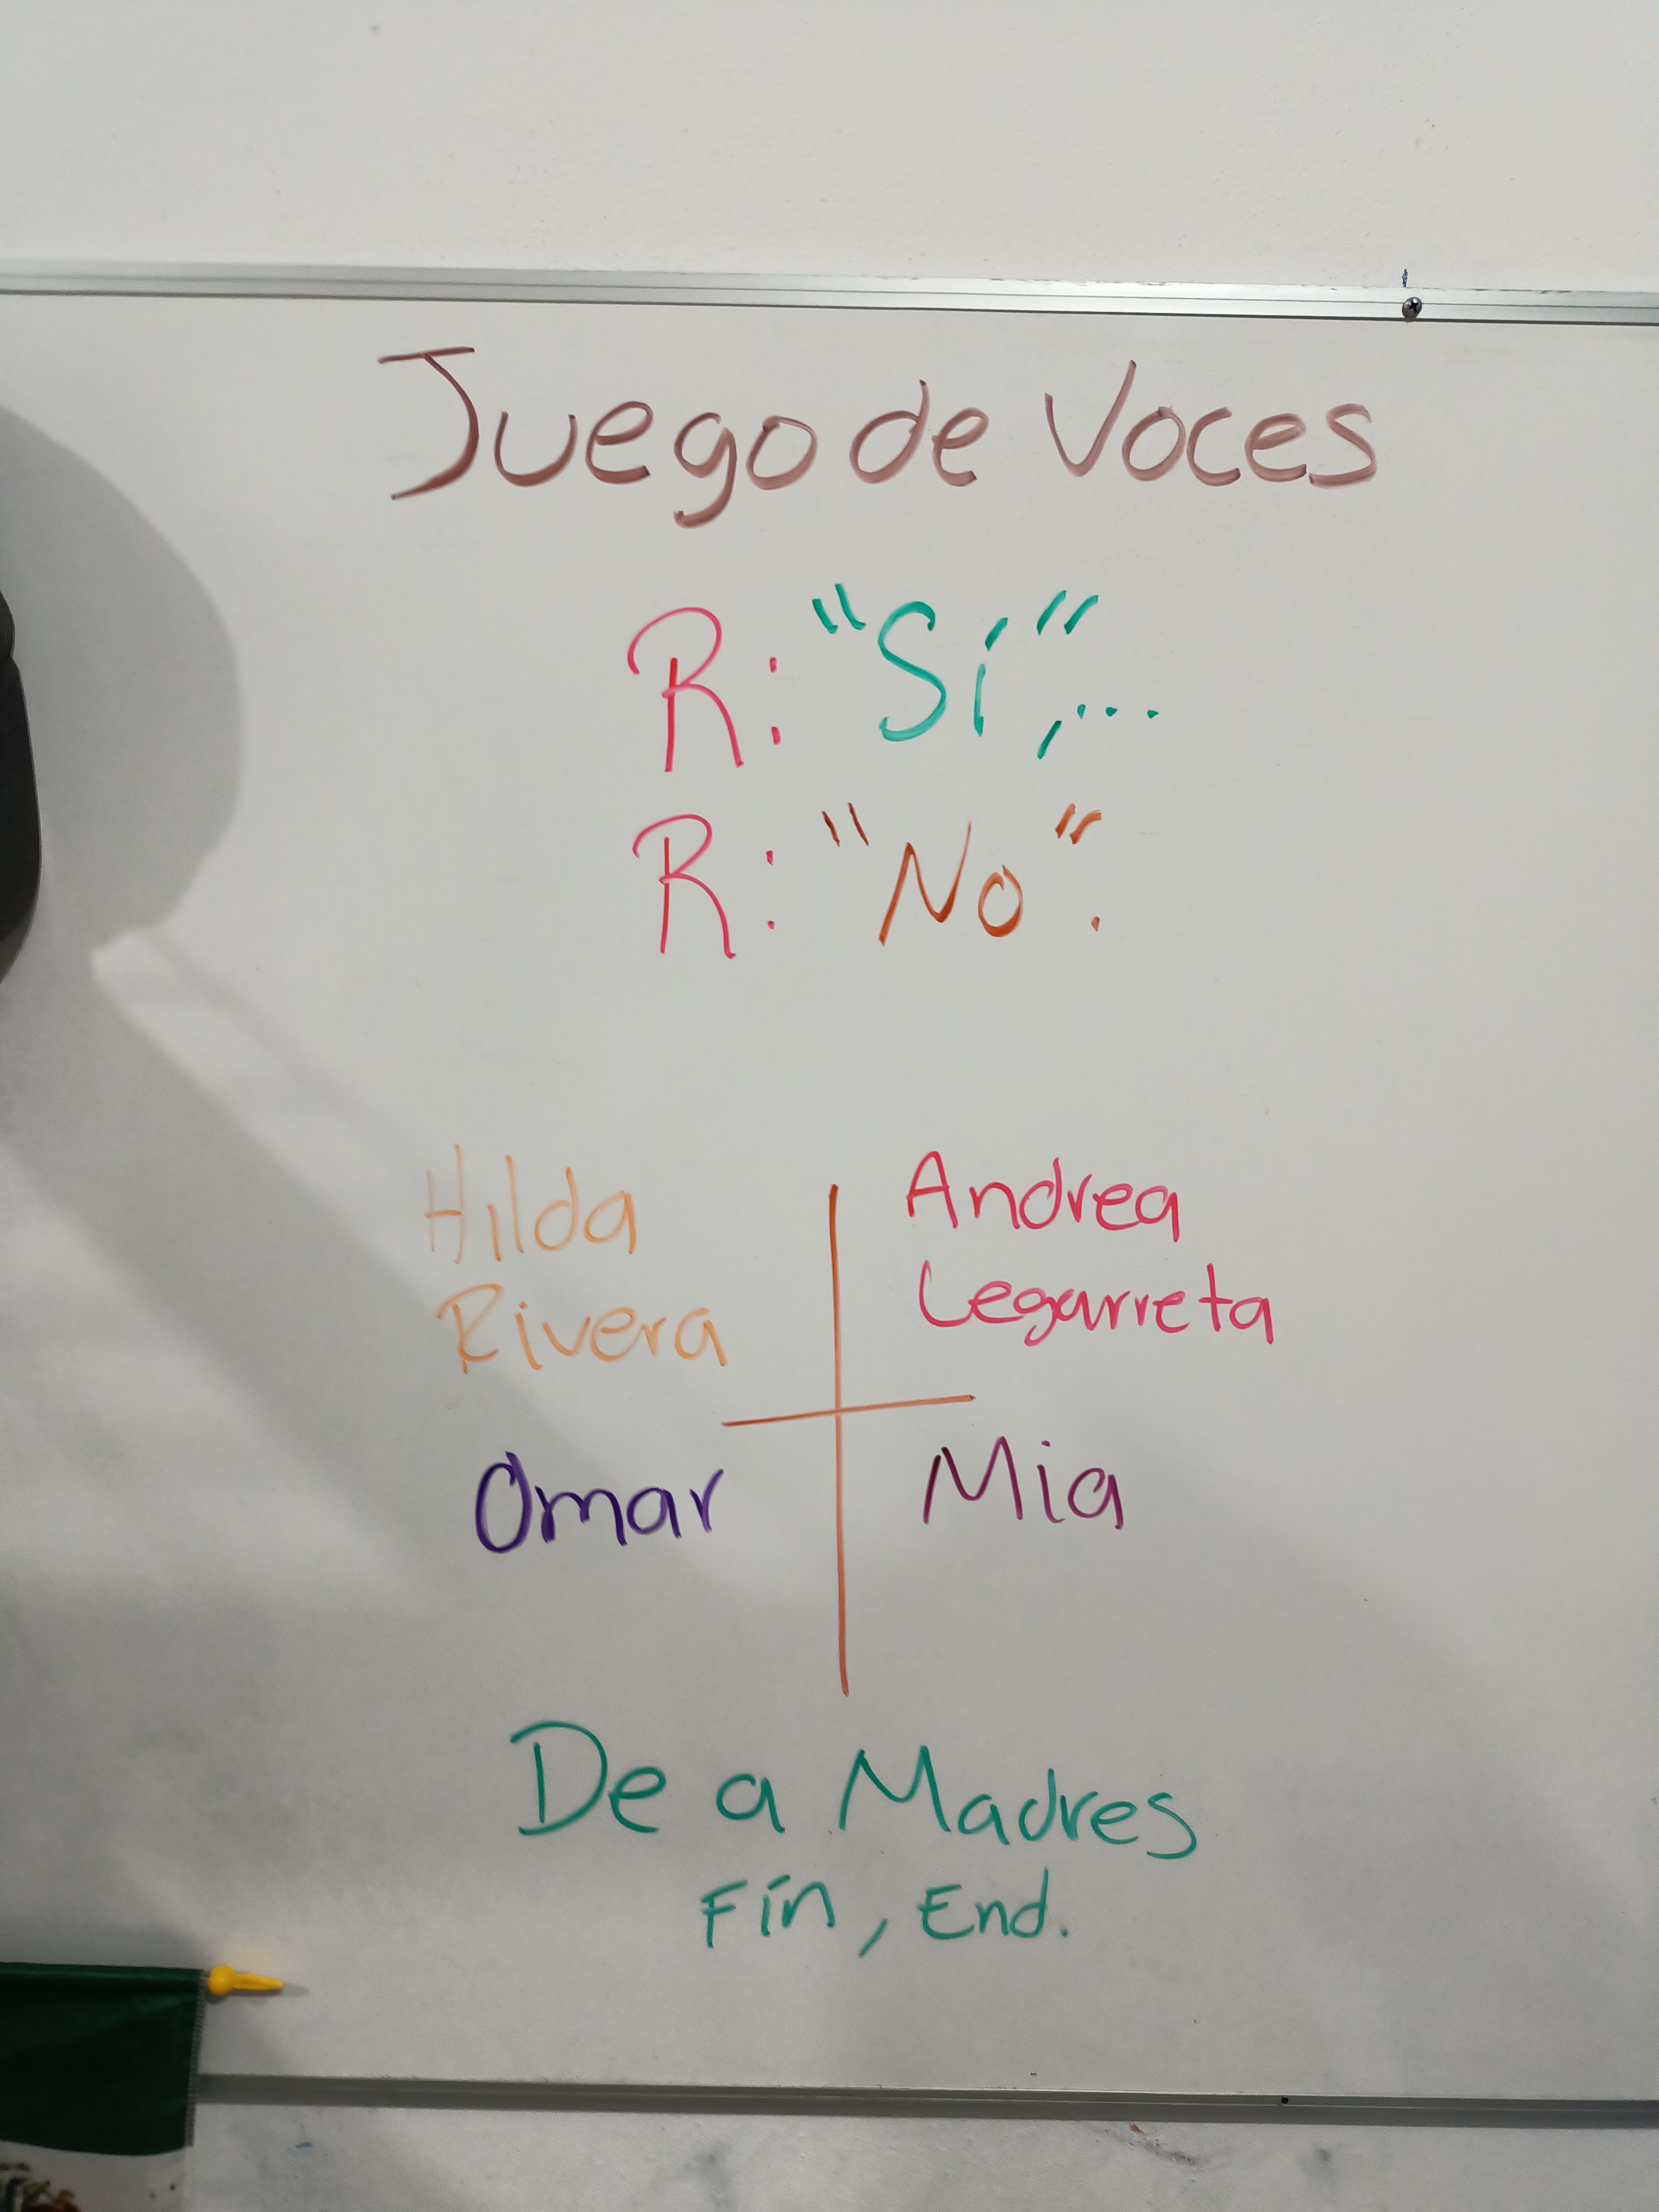 Juego de Voces
R: "Sí",...
R: "No".
Hilda
Rivera
Andrea
Legarreta
Omar
Mia
De a Madres
Fín, End.